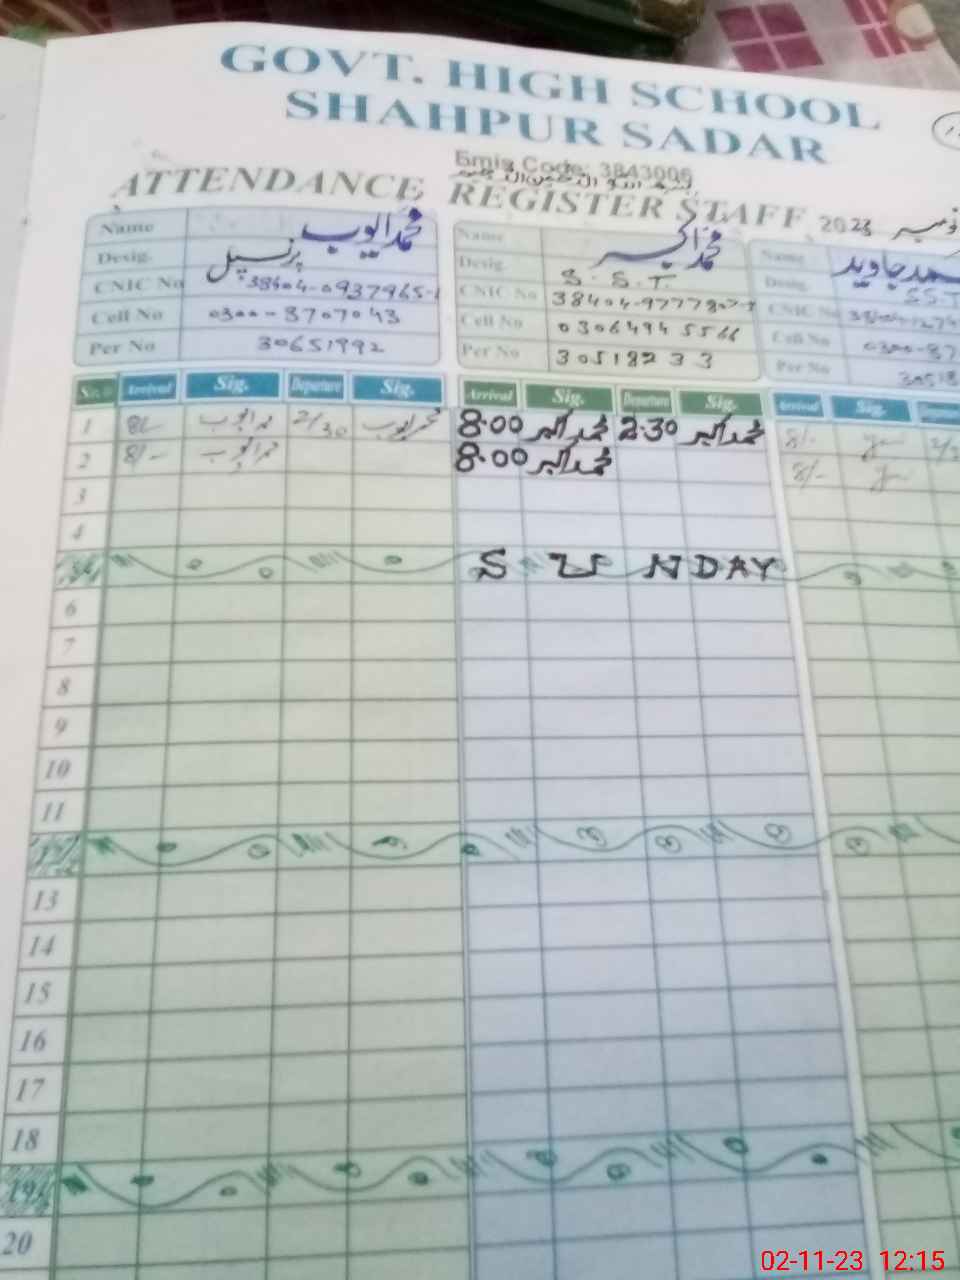 GOVT. HIGH SCHOOL
SHAHPUR SADAR
Emis Code: 3843006
ATTENDANCE REGISTER STAFF 2023 نومبر
Name محمد ایوب
Desig. پرنسپل
CNIC No 38404-0937965-1
Cell No 0300-8707043
Per No 30651992
Name محمد اکبر
Desig. S.S.T.
CNIC No
Cell No 0306494 5566
Per No 30518233
Name جاوید
Desig. SST
CNIC No
Cell No 0300-87
Per No 3051
Arrival Sig. Departure Sig. Arrival Sig. Departure Sig. Arrival Sig.
1 8/- محمد ایوب 2/30 محمد ایوب 8.00 محمد اکبر 2.30 محمد اکبر 8/-
2 8/- محمد ایوب 8.00 محمد اکبر 8/-
3
4
SUNDAY
6
7
8
9
10
11
13
14
15
16
17
18
20
02-11-23 12:15